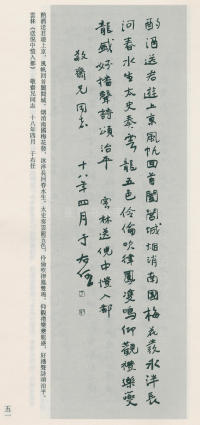 酌酒送君遊上京風帆回首闔閭城烟消南國梅花發冰泮長
河春水生太史奏雲龍五色伶倫吹律鳳雙鳴仰觀禮樂夔
龍盛好播聲詩頌治平　雲林送倪中愷入都
敬齋兄同志　十八年四月于右任
酌酒送君遊上京，風帆回首闔閭城。烟消南國梅花發，冰泮長河春水生。太史奏雲龍五色，伶倫吹律鳳雙鳴。仰觀禮樂夔龍盛，好播聲詩頌治平。
雲林《送倪中愷入都》　敬齋兄同志　十八年四月　于右任
五一